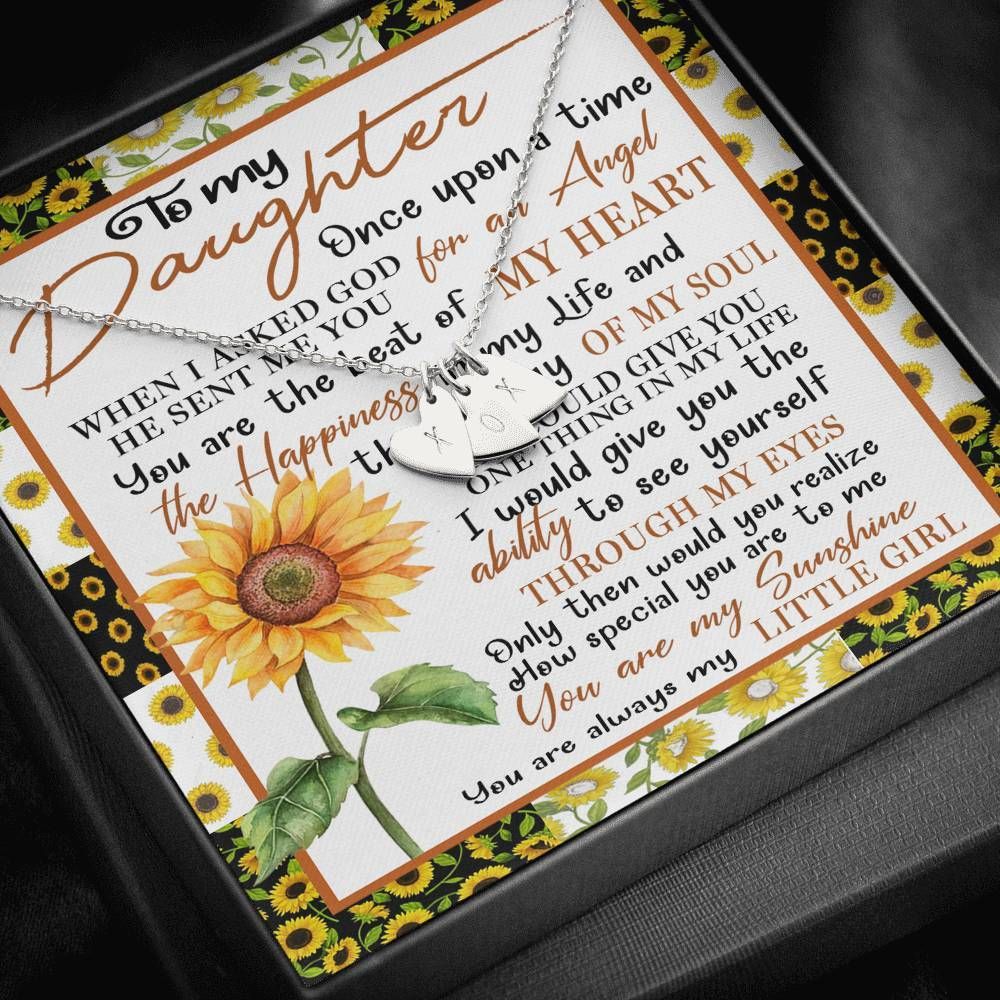 To my
Daughter
Once upon a time
WHEN I ASKED GOD for an Angel
HE SENT ME YOU
You are the beat of MY HEART
the Happiness my Life and
OF MY SOUL
GIVE YOU
ONE THING IN MY LIFE
I would give you the
ability to see yourself
THROUGH MY EYES
Only then would you realize
How special you are to me
You are my Sunshine
You are always my LITTLE GIRL
X O X